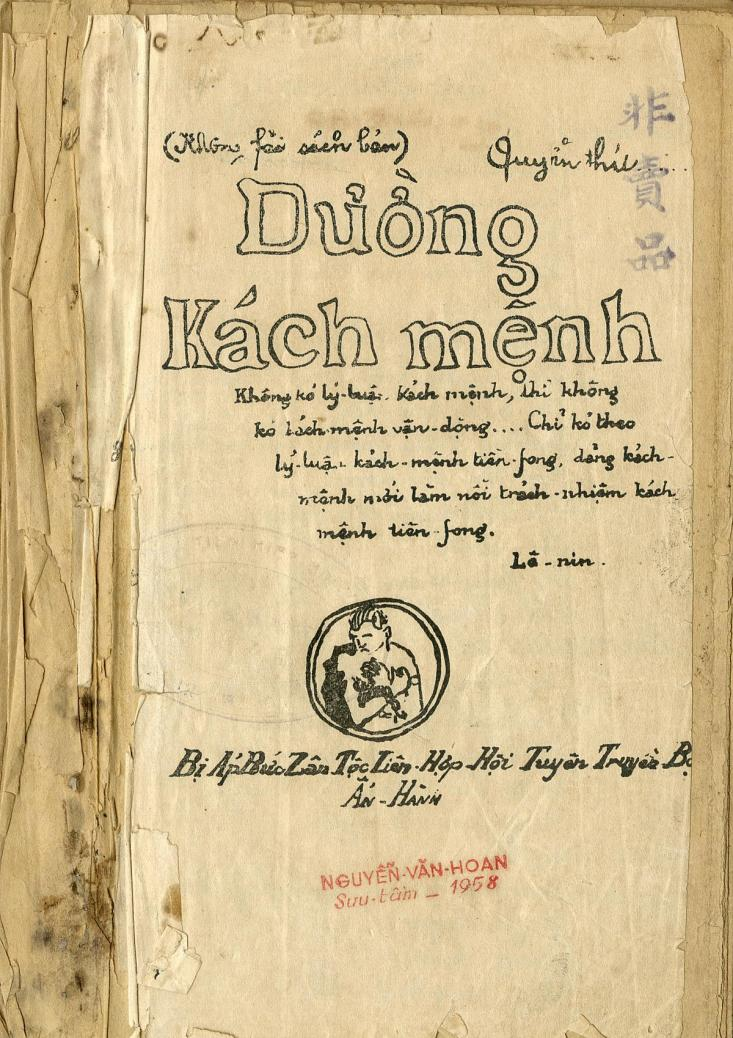 (Không fải sách bán)
Quyển thứ.....
非賣品
Dường
Kách mệnh
Không kó lý-luận kách mệnh, thì không
kó kách mệnh vận-động.... Chỉ kó theo
lý-luận kách-mệnh tiền-fong, đảng kách-
mệnh mới làm nổi trách-nhiệm kách
mệnh tiền-fong.
Lê-nin.
Bị Áp Bức Zân Tộc Liên-Hợp-Hội Tuyên Truyền Bộ
Ấn-Hành
NGUYỄN-VĂN-HOAN
Sưu-tầm — 1958